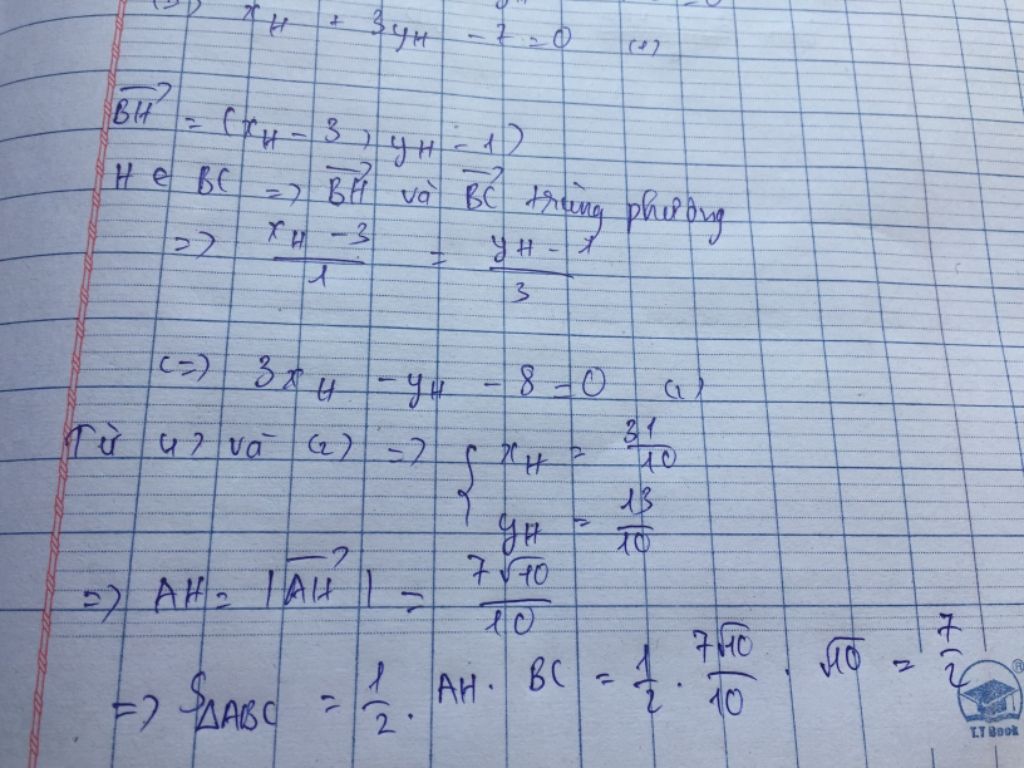 x_H + 3y_H - 7 = 0 (1)
BH = (x_H - 3, y_H - 1)
H ∈ BC => BH và BC trùng phương
=> (x_H - 3)/1 = (y_H - 1)/3
<=> 3x_H - y_H - 8 = 0 (2)
Từ (1) và (2) => { x_H = 31/10
y_H = 13/10
=> AH = |AH| = 7√10/10
=> S△ABC = 1/2 . AH . BC = 1/2 . 7√10/10 . √10 = 7/2
®
T.T Book